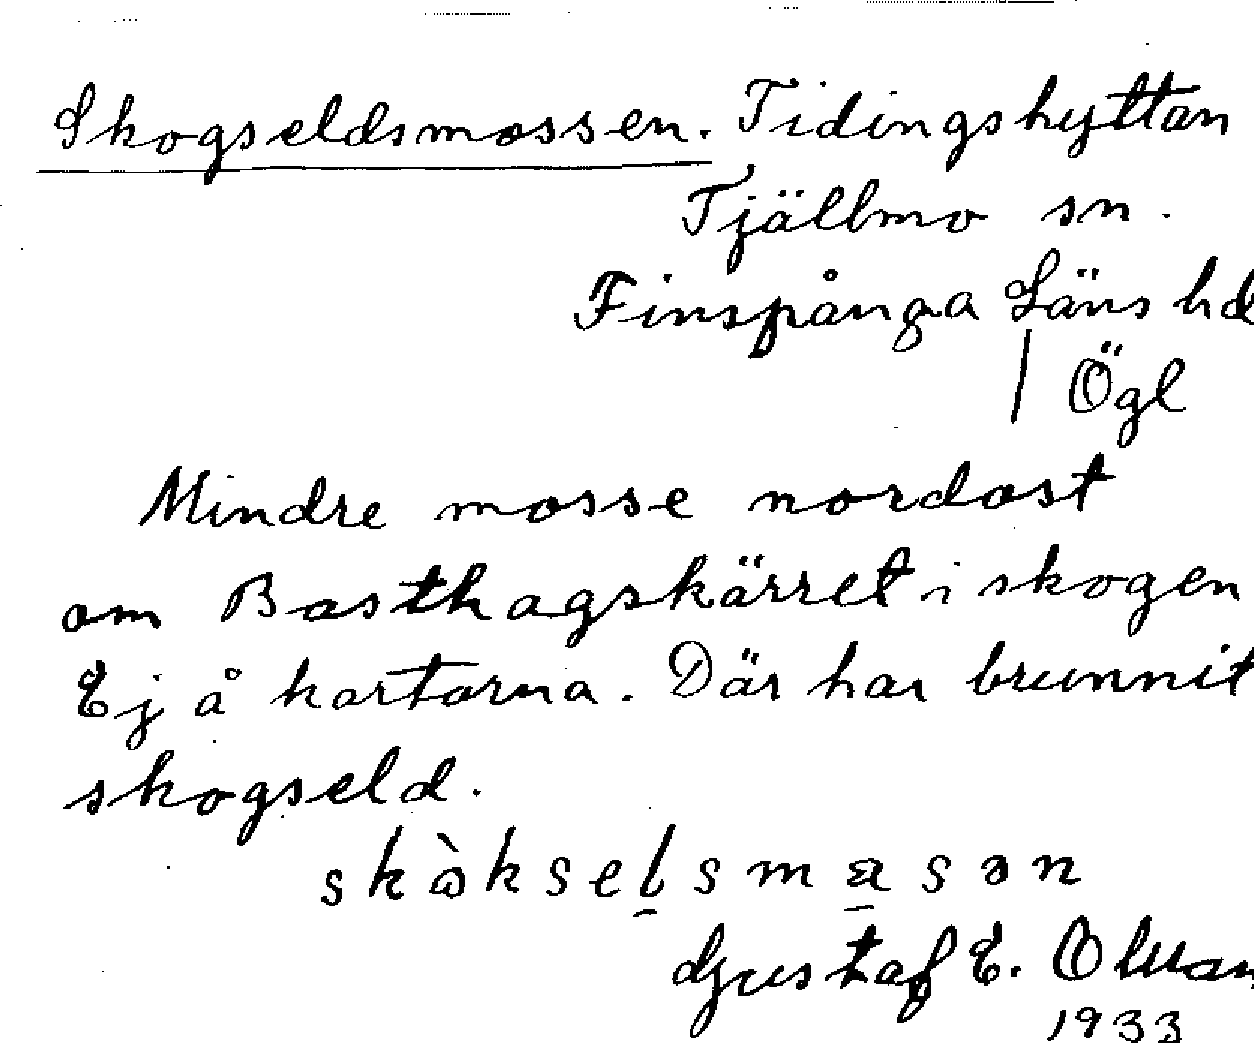 Skogseldsmossen. Tidingshyttan
Tjällmo sn.
Finspånga Läns hd
/ Ögl
Mindre mosse nordost
om Basthagskärret i skogen
Ej å kartorna. Där har brunnit
skogseld.
skòkselsmasən
Gustaf E.
1933